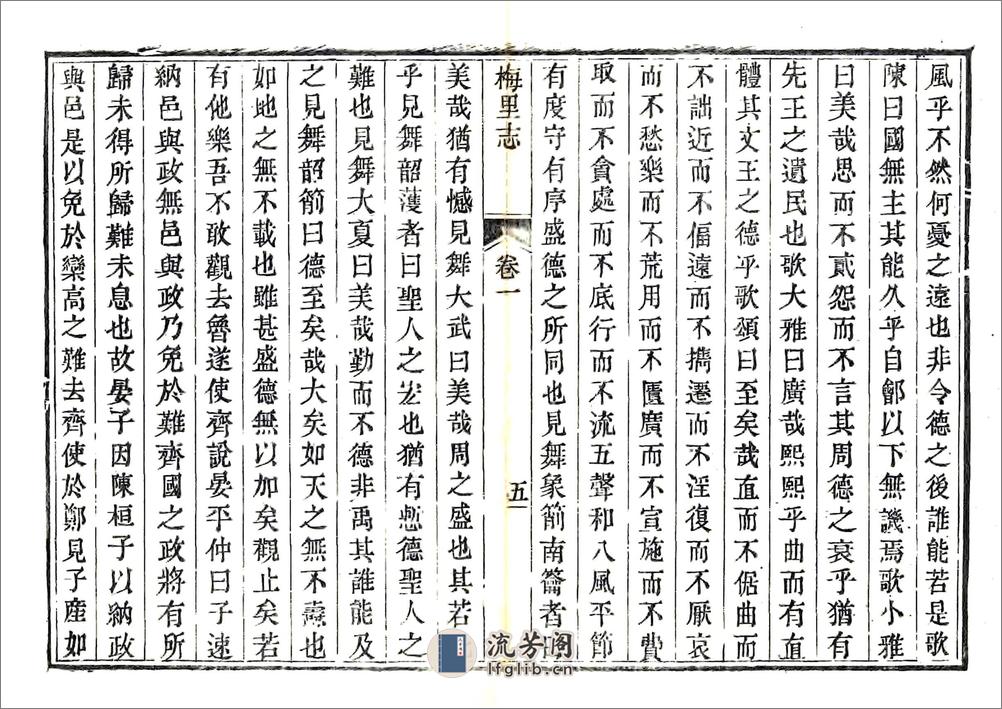 風乎不然何憂之遠也非令德之後誰能若是歌
陳曰國無主其能久乎自鄶以下無譏焉歌小雅
曰美哉思而不貳怨而不言其周德之衰乎猶有
先王之遺民也歌大雅曰廣哉熙熙乎曲而有直
體其文王之德乎歌頌曰至矣哉直而不倨曲而
不詘近而不偪遠而不擕遷而不淫復而不厭哀
而不愁樂而不荒用而不匱廣而不宣施而不費
取而不貪處而不底行而不流五聲和八風平節
有度守有序盛德之所同也見舞象箾南籥者曰
梅里志 卷一 五
美哉猶有憾見舞大武曰美哉周之盛也其若
乎見舞韶濩者曰聖人之宏也猶有慙德聖人之
難也見舞大夏曰美哉勤而不德非禹其誰能及
之見舞韶箾曰德至矣哉大矣如天之無不燾也
如地之無不載也雖甚盛德無以加矣觀止矣若
有他樂吾不敢觀去魯遂使齊說晏平仲曰子速
納邑與政無邑與政乃免於難齊國之政將有所
歸未得所歸難未息也故晏子因陳桓子以納政
與邑是以免於欒高之難去齊使於鄭見子產如
流芳阁
lfglib.cn